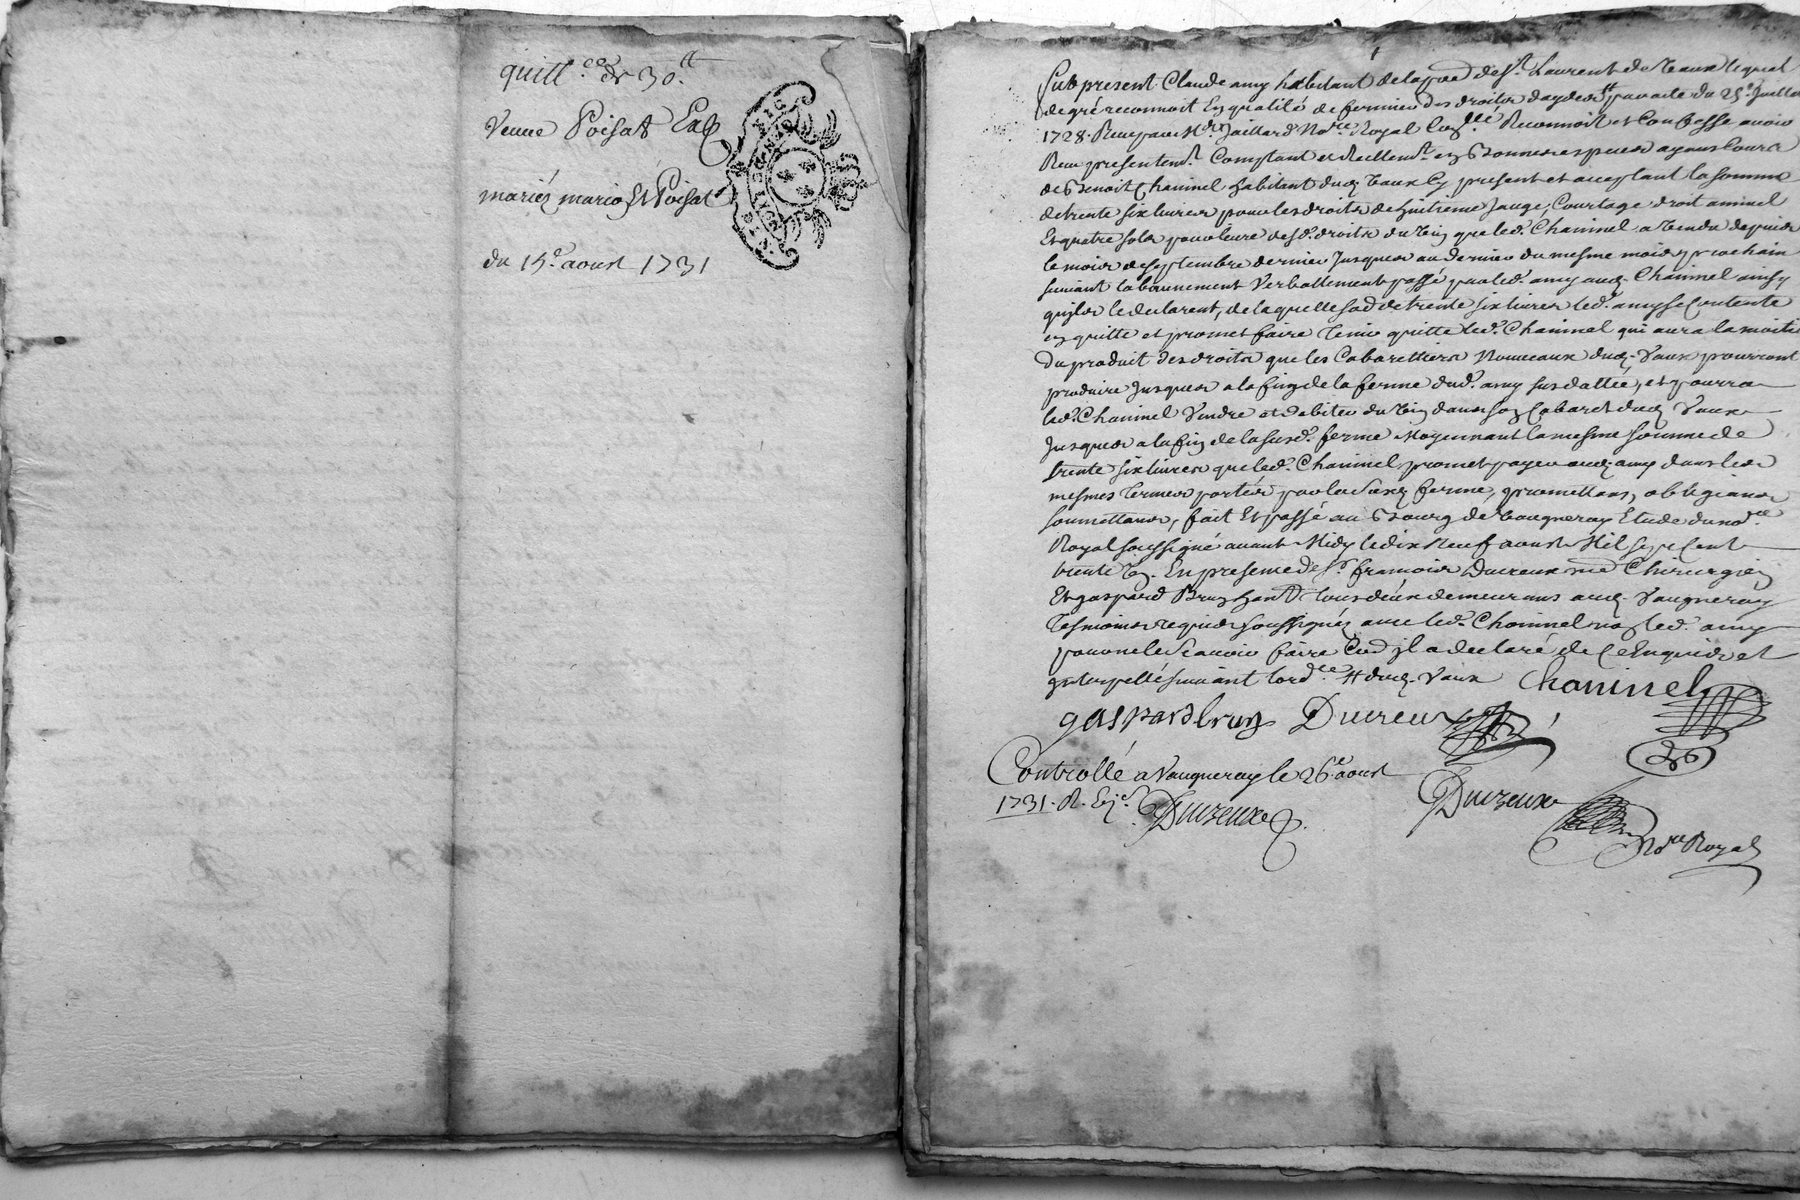 quitt.ce de 30.tt
Veuve Poisat
mariés marion Et Poisat
du 15.e aoust 1731
GENERALITE
Fut present Claude amy habitant de la p.sse de S.t Laurent de Vaux lequel
de gré reconnoit En qualité de fermier des droits daydes par acte du 25.e Juillet
1728. Receu par M.e Gaillard No.re Royal Reconnoit et Confesse avoir
Receu presentem.t Comptant et Reellem.t en bonnes especes ayans Cours
de Benoit Chaninel habitant dud. Vaux Cy present et acceptant la somme
de trente six livres pour les droits de huitieme Jauge, Courtage droit annuel
Et quatre sols pour livre desd. droits du vin que led. Chaninel a vendu depuis
le mois de septembre dernier Jusques au dernier du mesme mois prochain
suivant labonnement Verballement passé par led. amy aud. Chaninel ainsy
quils le declarent, de laquelle so.e de trente six livres led. amy se Contente
en quitte et promet faire tenir quitte led. Chaninel qui aura la moitié
du produit des droits que les Cabarettiers Nouveaux dud. Vaux pourront
produire Jusques a la fin de la ferme dud. amy susdattée, et pourra
led. Chaninel Vendre et debiter du vin dans son Cabaret dud. Vaux
Jusques a la fin de la susd. ferme Moyennant la mesme somme de
trente six livres que led. Chaninel promet payer aud. amy dans les
mesmes termes portés par la ferme, promettans, obligeans
soumettans, fait Et passé au Bourg de Vaugneray Etude du no.re
Royal soussigné avant Midy le dix Neuf aoust Mil sept Cent
trente un. En presence de S.r francois Ducreux me Chirurgien
Et gaspard Brun tous deux demeurans aud. Vaugneray
tesmoins requis soussignés avec led. Chaninel non led. amy
pour ne le scavoir faire Co.e il a declaré de Ce Enquis et
interpellé suivant lord.ce # dud. Vaux Chaninel
gaspard brun Ducreux
Controllé a Vaugneray le 26.e aoust
1731. R. Ducreux
Ducreux
No.re Royal